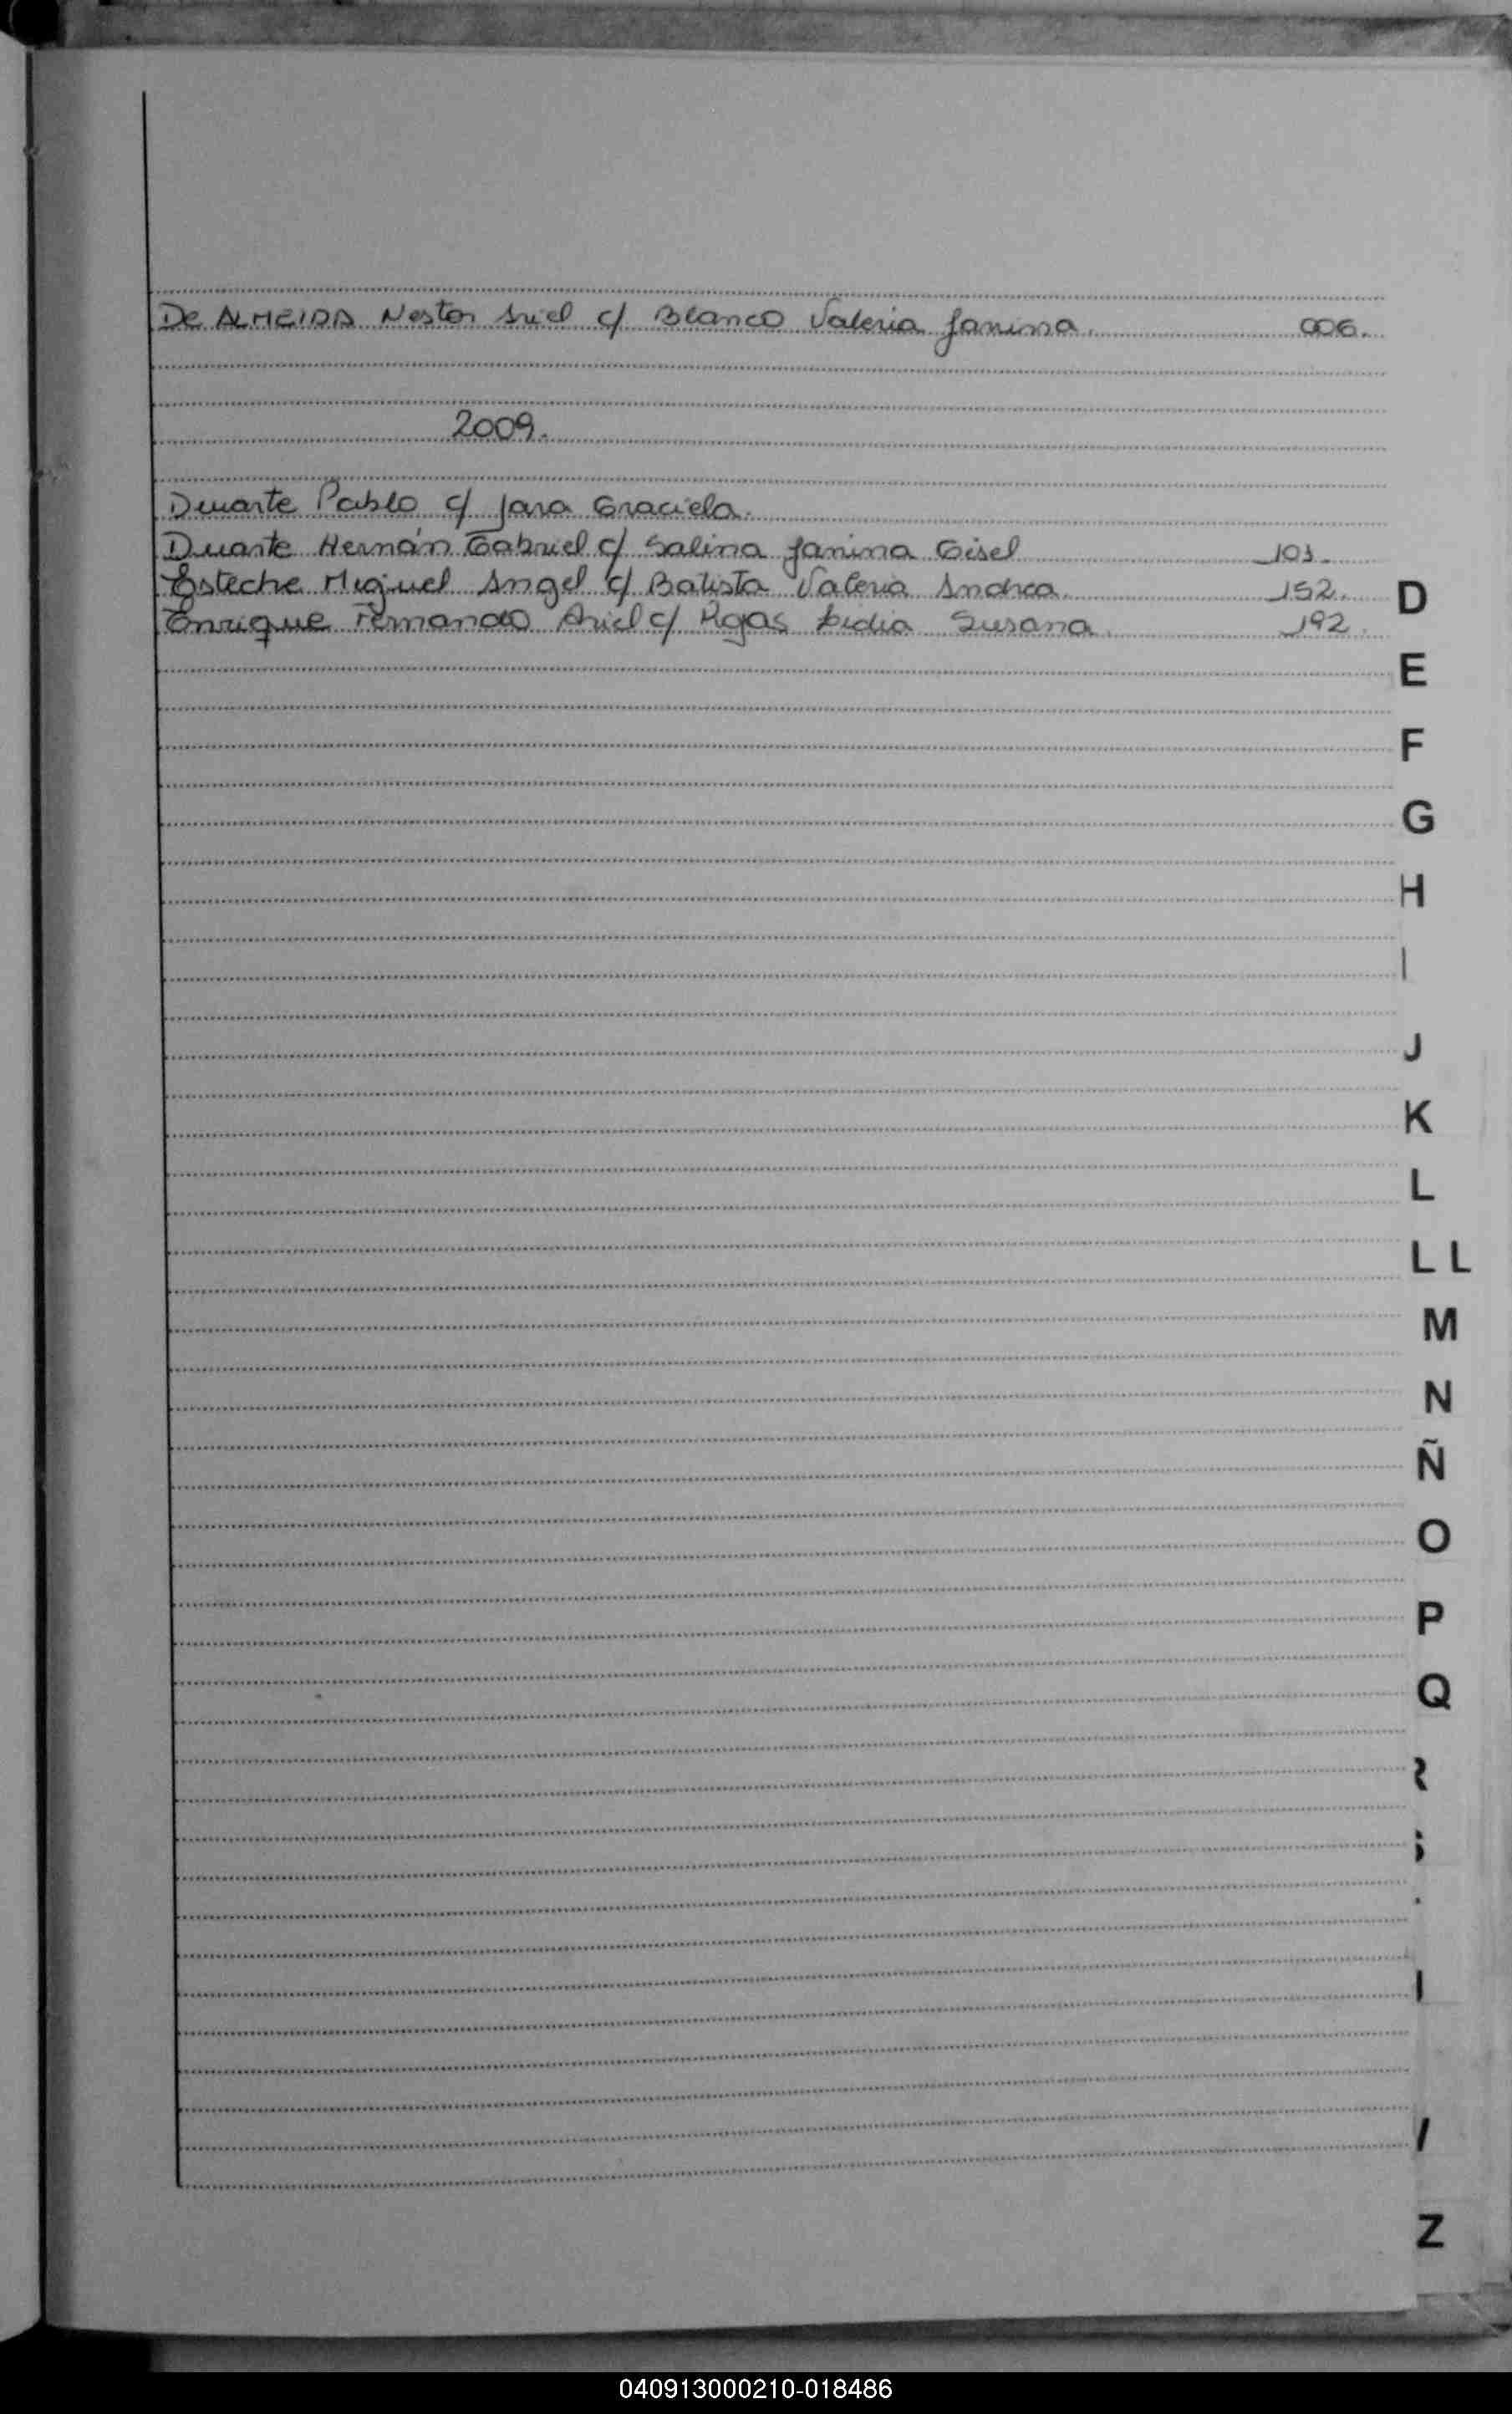 De ALMEIDA Nestor Ariel c/ Blanco Valeria Janina. 006.
2009.
Duarte Pablo c/ Jara Graciela.
Duarte Hernán Gabriel c/ Salina Janina Gisel 101.
Esteche Miguel Angel c/ Batista Valeria Andrea. 152.
Enrique Fernando Ariel c/ Rojas Lidia Susana. 192.
D
E
F
G
H
I
J
K
L
LL
M
N
Ñ
O
P
Q
Z
040913000210-018486